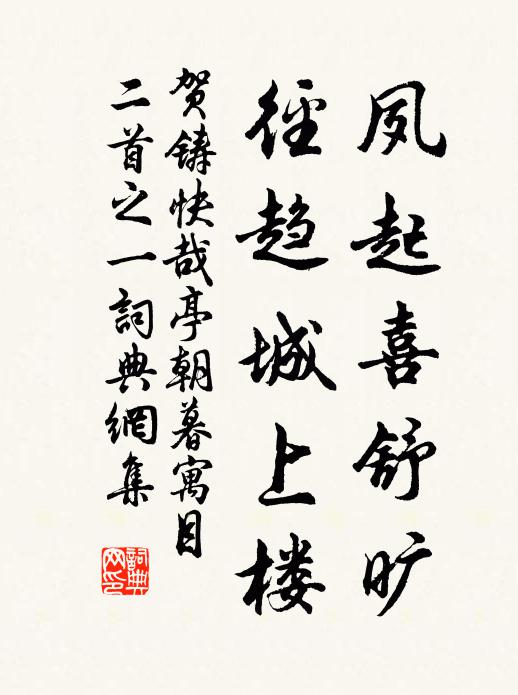 夙起喜舒旷
徑趋城上楼
贺鑄快哉亭朝暮寓目
二首之一詞典網集
詞典网印